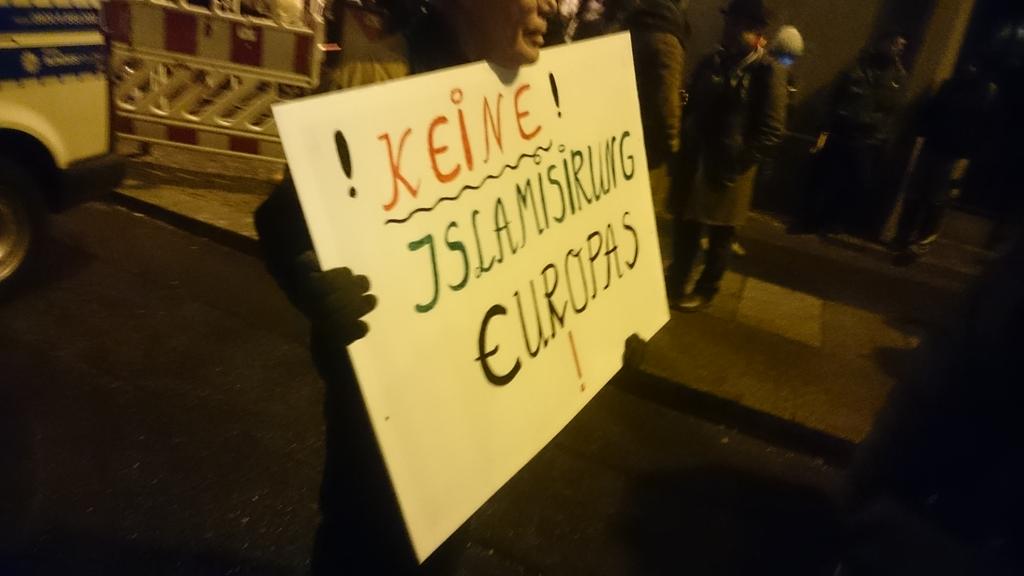 ! KEINE !
ISLAMISIRUNG
€UROPAS
!